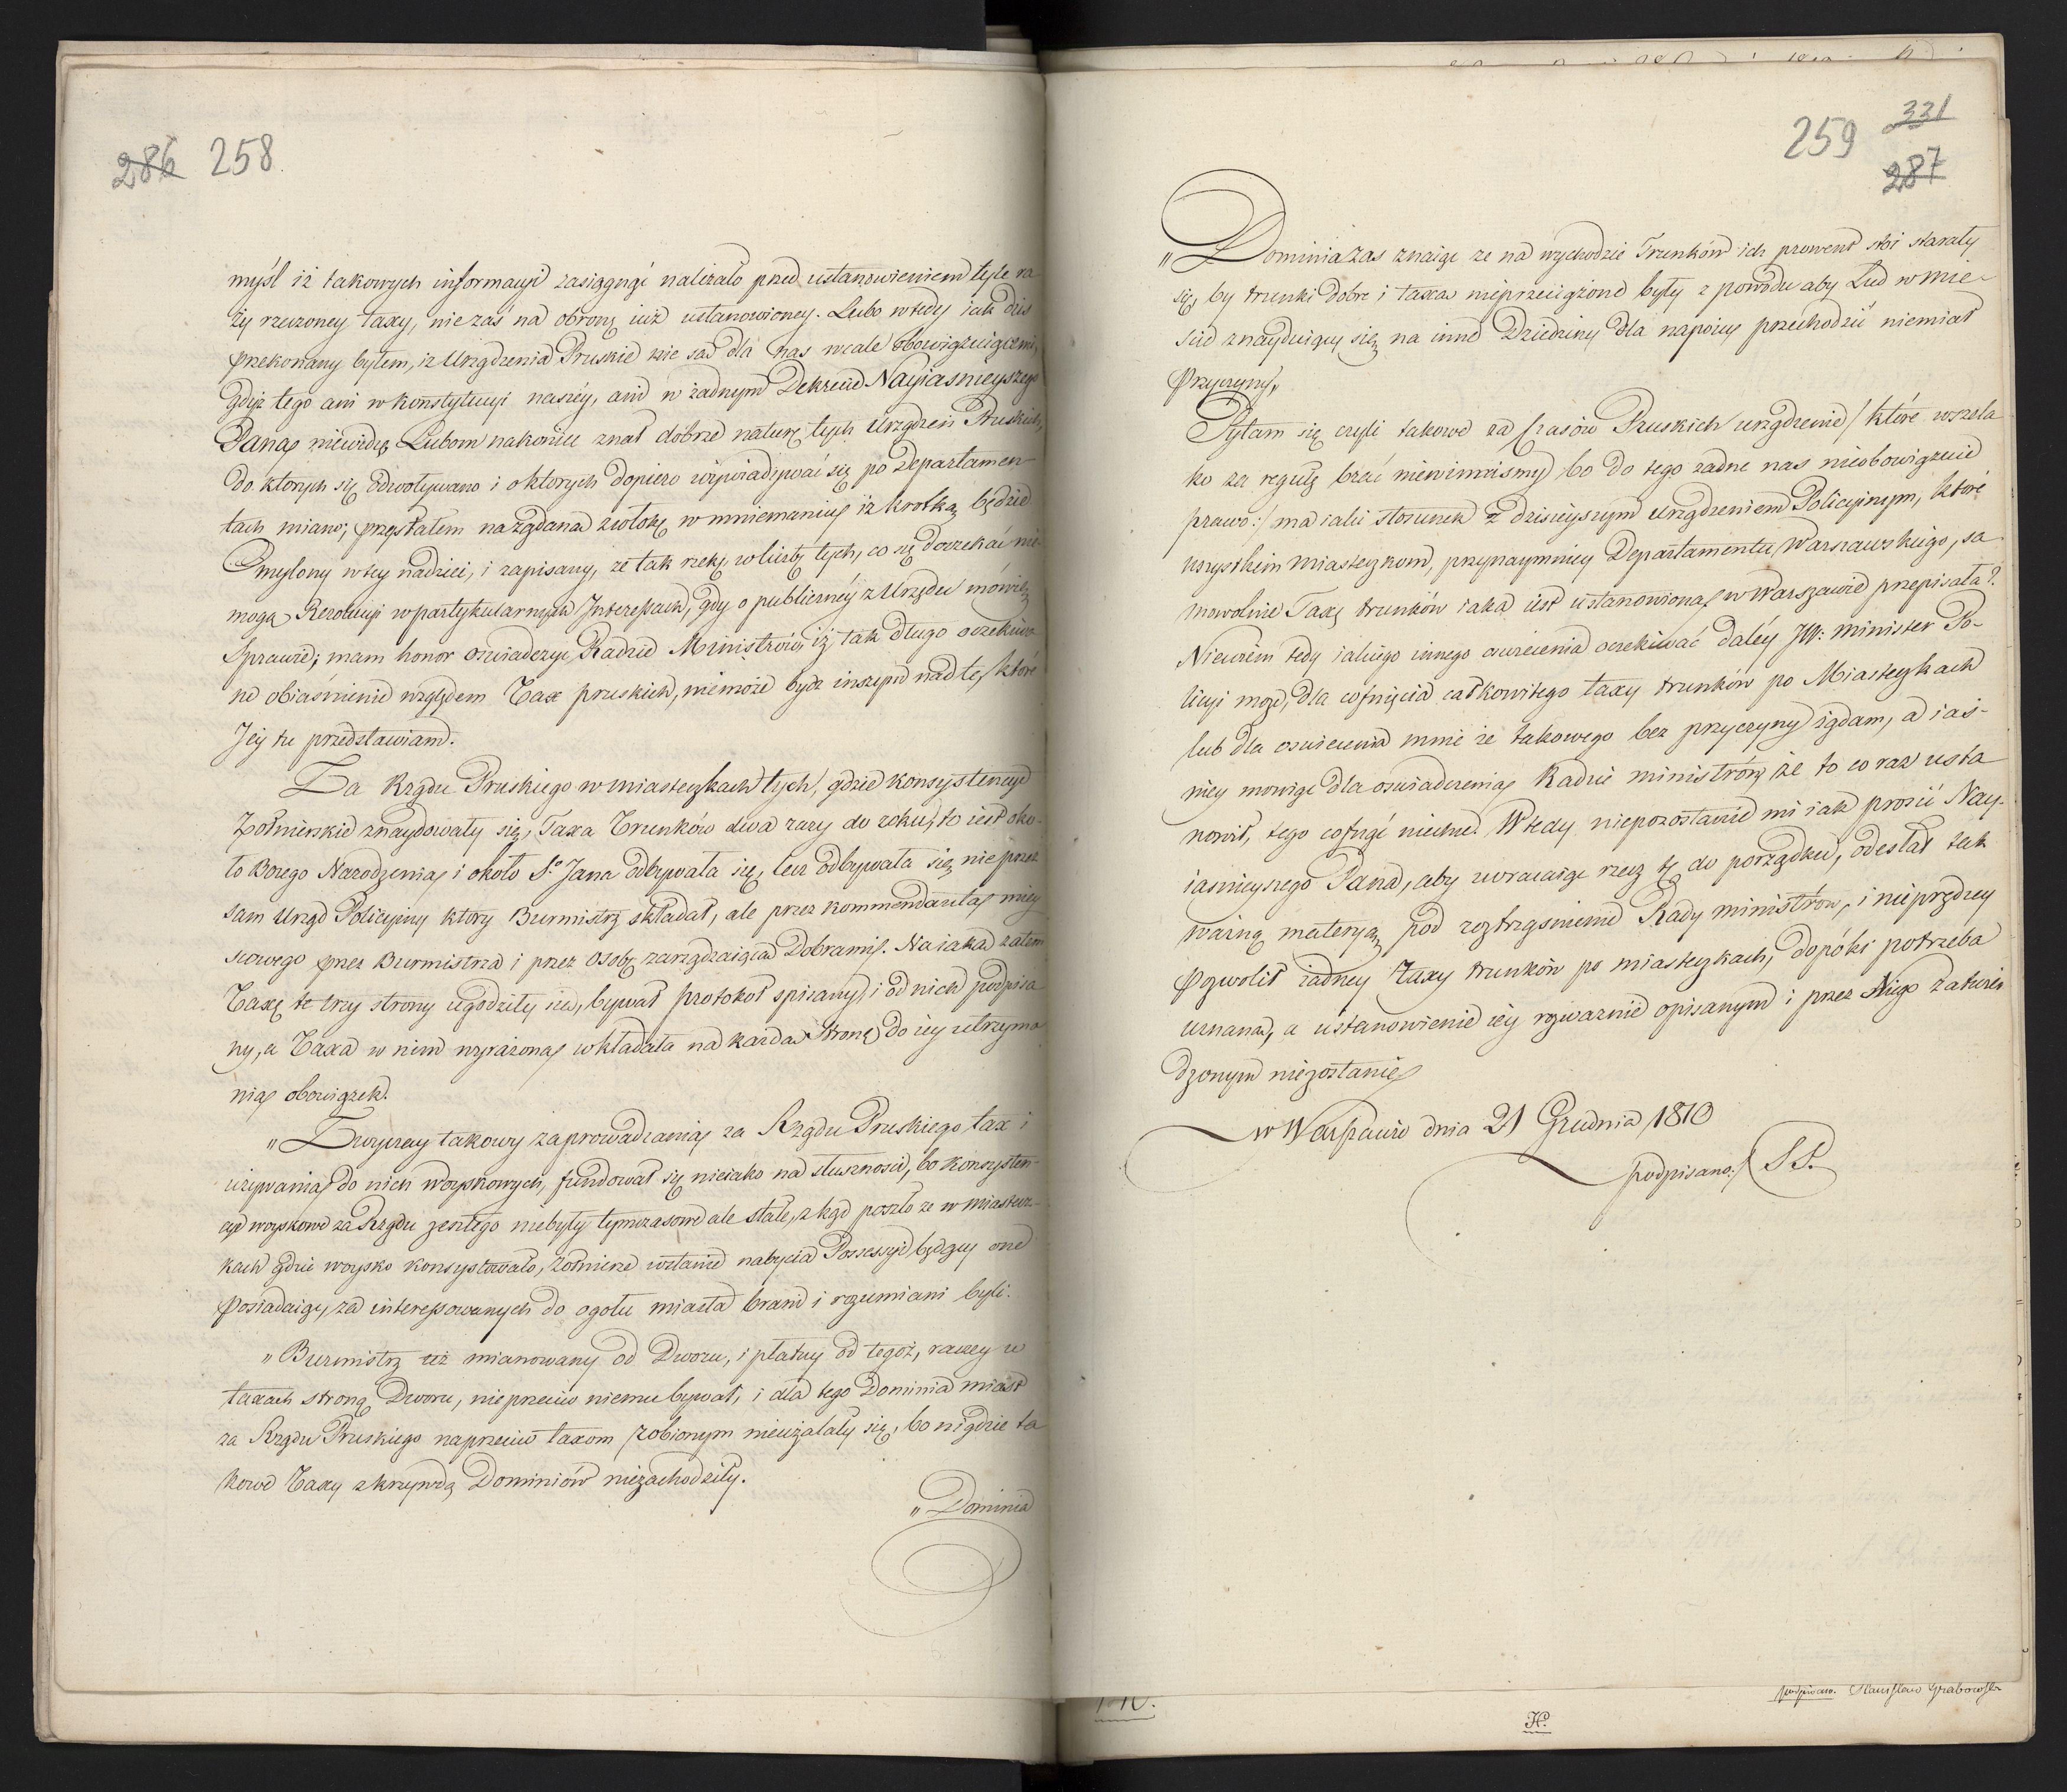 286 258
myśl iż takowych informacyi zasięgnąć należało przed ustanowieniem tyle ra
zy rzeczoney taxy, nie zaś na obronę iuż ustanowioney. Lubo wtedy iak dziś
przekonany byłem, iż Urządzenia Pruskie nie są dla nas wcale obowiązuiącemi,
gdyż tego ani w konstytucyi naszéy, ani w żadnym Dekrecie Nayiaśnieyszego
Pana niewidzę. Lubom nakoniec znał dobrze naturę tych Urządzeń Pruskich,
do których się odwoływano i o których dopiero wywiadywać się po Departamen
tach miano; przystałem na żądaną zwłokę w mniemaniu iż krótką będzie
Omylony w tey nadziei, i zapisany, że tak rzekę, w liczbę tych, co się doczekać nie
mogą Rezolucyi w partykularnych Interessach, gdy o publicznéy z Urzędu mówię
Sprawie; mam honor oświadczyć Radzie Ministrów, iż tak długo oczekiwa
ne obiaśnienie względem Tax pruskich, niemoże bydź inszym nad te, które
Jéy tu przedstawiam.
Za Rządu Pruskiego w miasteczkach tych, gdzie konsystencye
żołnierskie znaydowały się, Taxa Trunków dwa razy do roku, to iest oko-
ło Bożego Narodzenia i około Sgo Jana odbywała się, lecz odbywała się nie przez
sam Urząd Policyiny który Burmistrz składał, ale przez kommendanta miey
scowego przez Burmistrza i przez osobę zarządzaiącą Dobrami. Na iaką zatem
Taxę te trzy strony ugodziły się, bywał protokół spisany, i od nich podpisa
ny, a Taxa w nim wyrażona wkładała na każdą stronę do iéy utrzyma
nia obowiązek.
„Zwyczay takowy zaprowadzania za Rządu Pruskiego tax i
używania do nich woyskowych, fundował się nieiako na słuszności, bo konsysten-
cye woyskowe za Rządu zeszłego niebyły tymczasowe ale stałe, zkąd poszło że w miastecz-
kach gdzie woysko konsystowało, żołnierze w stanie nabycia Possessyi będący one
posiadaiąc, za interessowanych do ogółu miasta brani i rozumiani byli.
„Burmistrz też mianowany od Dworu, i płatny od tegoż, raczey w
taxach stroną Dworu, nie przeciw niemu bywał, i dla tego Dominia miast
za Rządu Pruskiego naprzeciw taxom robionym nieużalały się, bo nigdzie ta
kowe Taxy z krzywdą Dominiów niezachodziły.
„Dominia
259 331
287
„Dominia zaś znaiąc że na wychodzie Trunków ich prowent stoi starały
się, by trunki dobre i taxa nieprzeciążone były z powodu aby Lud w mie-
ście znayduiący się na inne Dziedziny dla napoiu przechodzić niemiał
przyczyny.
Pytam się czyli takowe za czasów Pruskich urządzenie / które wszela
ko za regułę brać niewinniśmy bo do tego żadne nas nieobowiązuie
prawo:/ ma iaki stosunek z dzisieyszym urządzeniem Policyinym, które
wszystkim miasteczkom, przynaymniey Departamentu Warszawskiego, sa
mowolnie Taxę trunków iaka iest ustanowiona w Warszawie przepisała?
Niewiem tedy iakiego innego oświecenia oczekiwać daléy JW: Minister Po-
licyi może, dla cofnięcia całkowitego taxy trunków po Miasteczkach
lub dla oświecenia mnie że takowego bez przyczyny żądam, a iaś-
niey mówiąc dla oświadczenia Radzie ministrów, że to co raz usta
nowił, tego cofnąć niechce. Wtedy niepozostanie mi iak prosić Nay-
iaśnieyszego Pana, aby zwracaiąc rzecz tę do porządku, odesłał tak
ważną materyą pod roztrząśnienie Rady ministrów, i nieprędzey
pozwolił żadney taxy trunków po miasteczkach, dopóki potrzeba
uznaną, a ustanowienie iéy rozważnie opisanym i przez Niego zatwier
dzonym niezostanie
w Warszawie dnia 21 Grudnia 1810
podpisano:/ S P.
podpisano. Stanisław Grabowski
H.